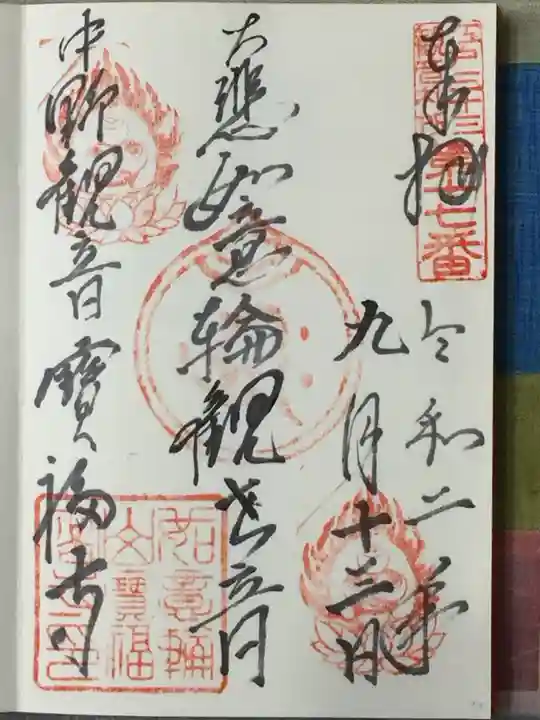 奉拝
第十七番
令和二年
九月十三日
大悲如意輪観世音
中野観音寳福寺
如意輪
山寳福